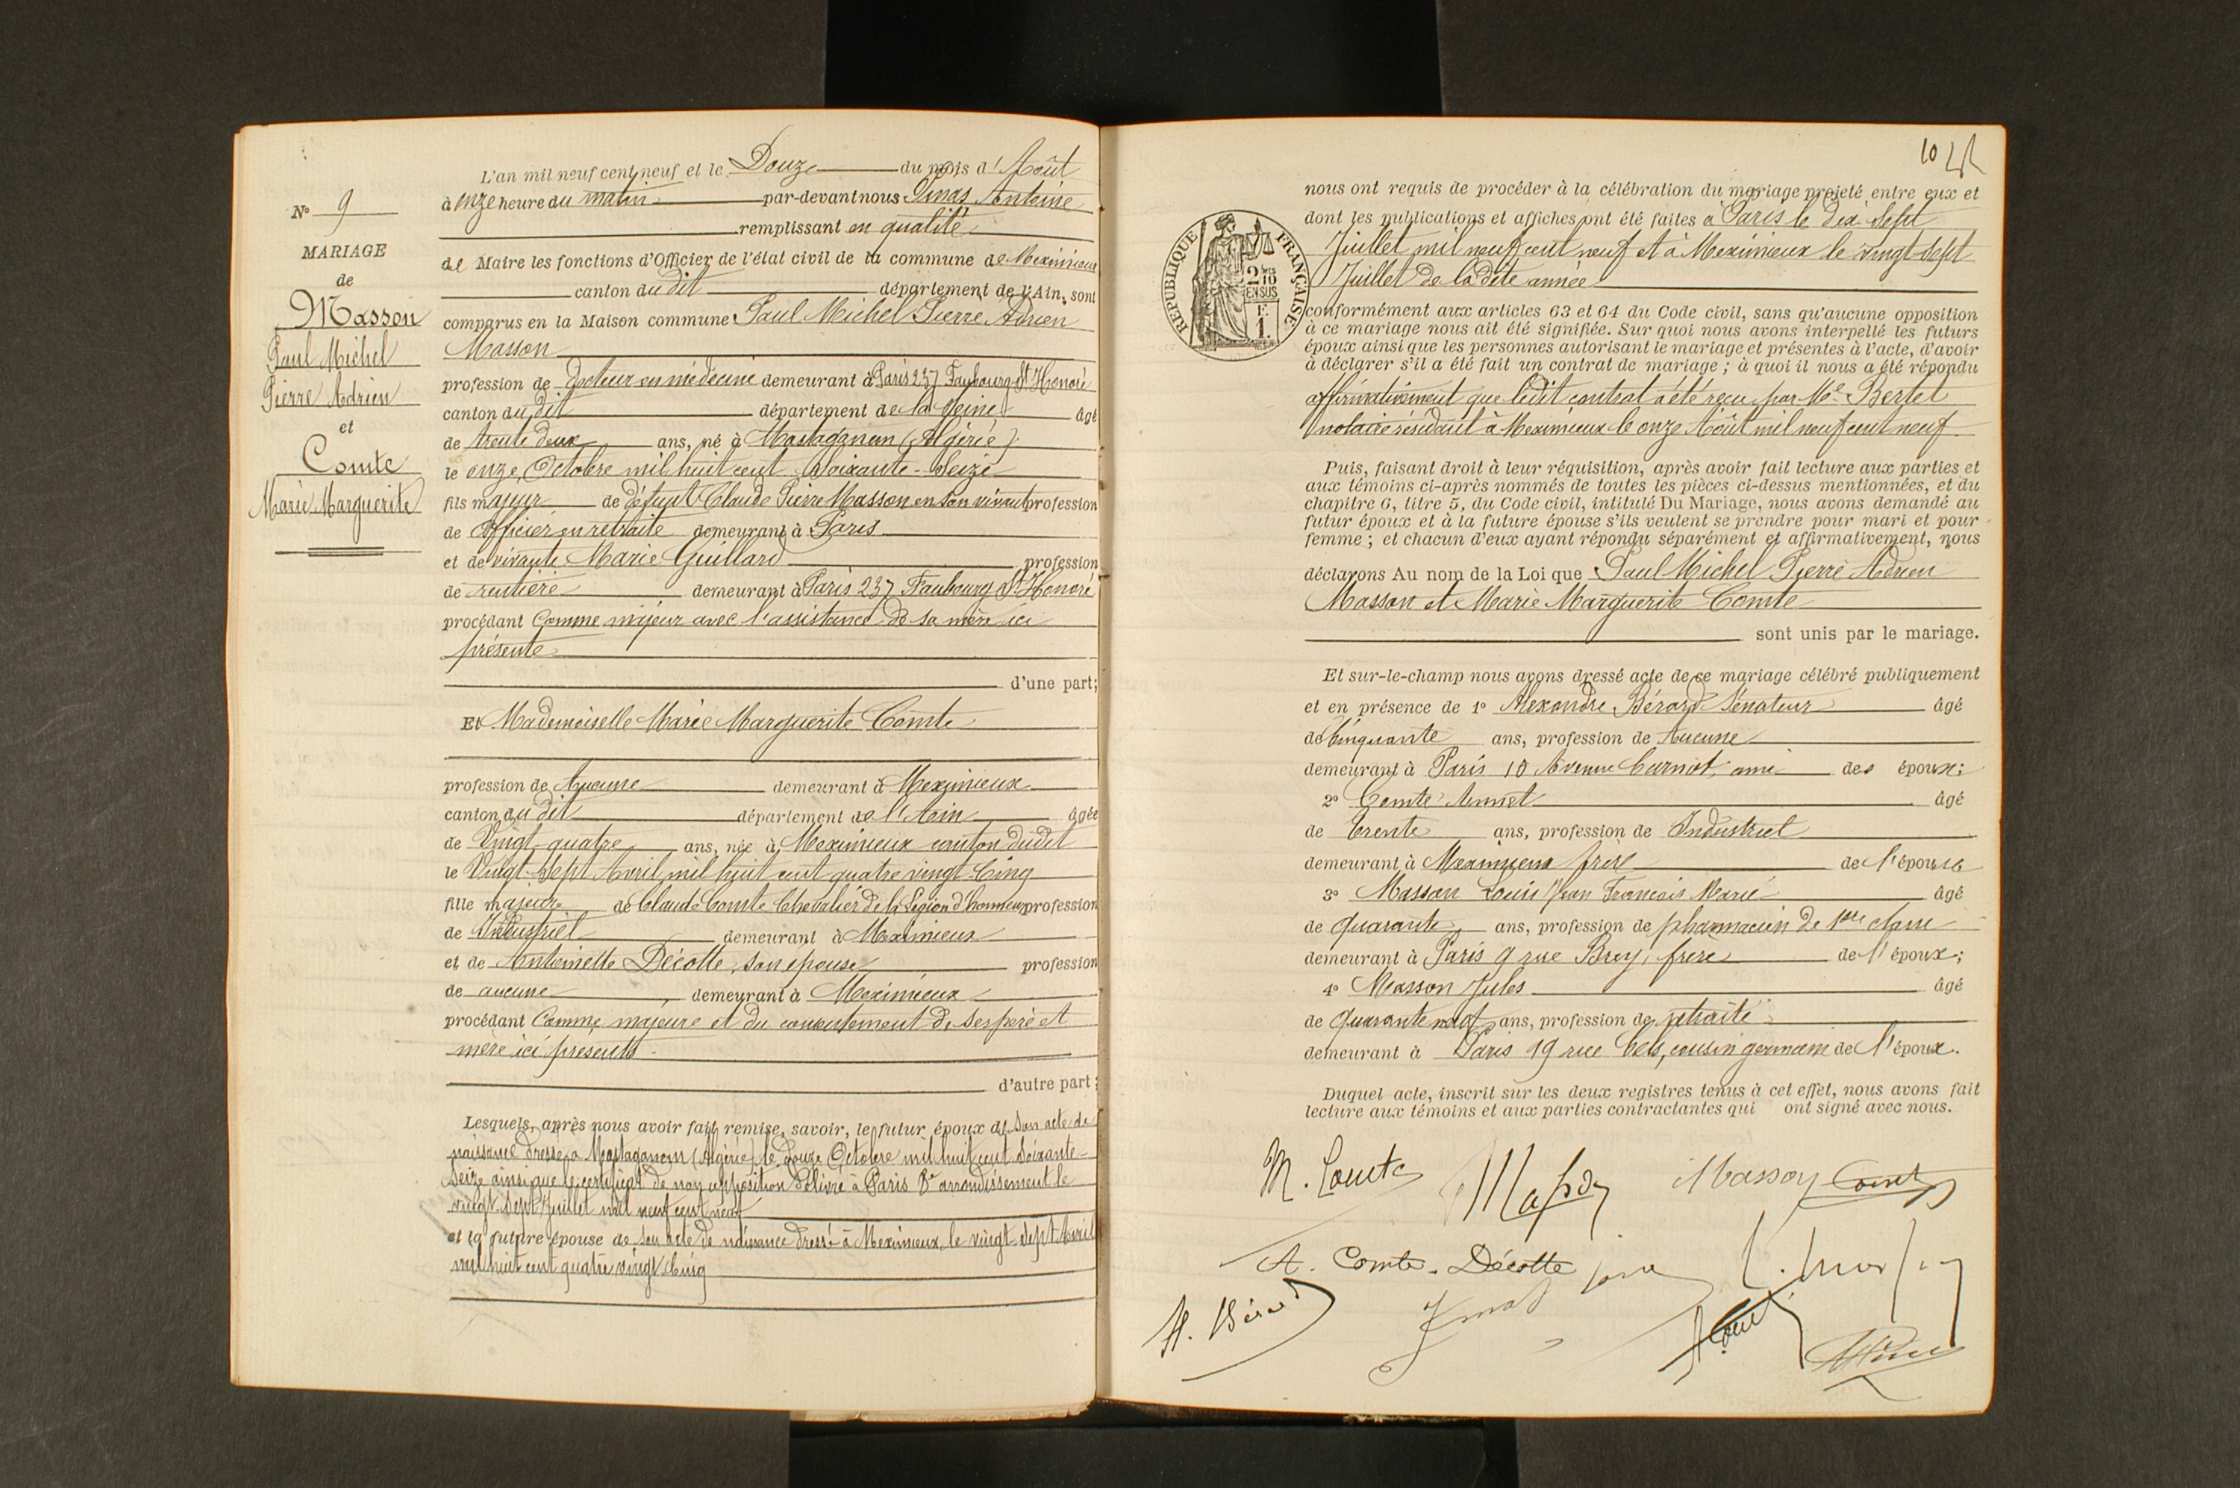 L'an mil neuf cent neuf et le Douze du mois d'Août
à onze heure du matin par-devant nous Antoine
remplissant en qualité
de Maire les fonctions d'Officier de l'état civil de la commune de Meximieux
canton du dit département de l'Ain, sont
comparus en la Maison commune Paul Michel Pierre Adrien
Masson
profession de Docteur en médecine demeurant à Paris 237 Faubourg St Honoré
canton du dit département de la Seine âgé
de trente deux ans, né à Mostaganem (Algérie)
le onze Octobre mil huit cent Soixante-Seize
fils majeur de défunt Claude Pierre Masson en son vivant profession
de officier en retraite demeurant à Paris
et de vivante Marie Guillard profession
de rentière demeurant à Paris 237 Faubourg St Honoré
procédant Comme majeur avec l'assistance de sa mère ici
présente
d'une part;
Et Mademoiselle Marie Marguerite Comte
profession de Aucune demeurant à Meximieux
canton du dit département de l'Ain âgée
de Vingt quatre ans, née à Meximieux canton dudit
le Vingt-Sept Avril mil huit cent quatre vingt Cinq
fille majeure de Claude Comte Chevalier de la Légion d'honneur profession
de Industriel demeurant à Meximieux
et de Antoinette Décotte, son épouse profession
de aucune demeurant à Meximieux
procédant Comme majeure et du consentement de ses père et
mère ici présents.
d'autre part;
Lesquels, après nous avoir fait remise, savoir, le futur époux de Son acte de
naissance dressé à Mostaganem (Algérie) le douze Octobre mil huit cent Soixante-
Seize ainsi que le certificat de non opposition délivré à Paris 8e arrondissement le
vingt-Sept Juillet mil neuf cent neuf
et la future épouse de Son acte de naissance dressé à Meximieux, le vingt-Sept Avril
mil huit cent quatre vingt Cinq
No 9
MARIAGE
de
Masson
Paul Michel
Pierre Adrien
et
Comte
Marie Marguerite
10
nous ont requis de procéder à la célébration du mariage projeté entre eux et
dont les publications et affiches ont été faites à Paris le dix-Sept
Juillet mil neuf cent neuf et à Meximieux le vingt-Sept
Juillet de la dite année
REPUBLIQUE FRANÇAISE
2/10
EN SUS
F.
1.
conformément aux articles 63 et 64 du Code civil, sans qu'aucune opposition
à ce mariage nous ait été signifiée. Sur quoi nous avons interpellé les futurs
époux ainsi que les personnes autorisant le mariage et présentes à l'acte, d'avoir
à déclarer s'il a été fait un contrat de mariage; à quoi il nous a été répondu
affirmativement que ledit contrat a été reçu par Me Bertet
notaire résidant à Meximieux le onze Août mil neuf cent neuf.
Puis, faisant droit à leur réquisition, après avoir fait lecture aux parties et
aux témoins ci-après nommés de toutes les pièces ci-dessus mentionnées, et du
chapitre 6, titre 5, du Code civil, intitulé Du Mariage, nous avons demandé au
futur époux et à la future épouse s'ils veulent se prendre pour mari et pour
femme; et chacun d'eux ayant répondu séparément et affirmativement, nous
déclarons Au nom de la Loi que Paul Michel Pierre Adrien
Masson et Marie Marguerite Comte
sont unis par le mariage.
Et sur-le-champ nous avons dressé acte de ce mariage célébré publiquement
et en présence de 1º Alexandre Bérard Sénateur âgé
de Cinquante ans, profession de Aucune
demeurant à Paris 10 Avenue Carnot, ami des époux;
2º Comte âgé
de Trente ans, profession de Industriel
demeurant à Meximieux frère de l'épouse
3º Masson Louis Jean François Marie âgé
de quarante ans, profession de pharmacien de 1ère classe
demeurant à Paris 9 rue Brey, frère de l'époux;
4º Masson Jules âgé
de quarante neuf ans, profession de retraité
demeurant à Paris 19 rue cousin germain de l'époux.
Duquel acte, inscrit sur les deux registres tenus à cet effet, nous avons fait
lecture aux témoins et aux parties contractantes qui ont signé avec nous.
M. Comte Masson Masson Comte
A. Comte-Décotte
A. Bérard